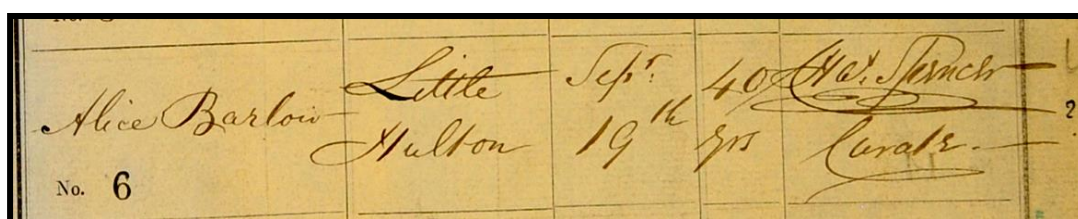 Alice Barlow
Little
Hulton
Sepr.
19th
40
yrs
Spencer
Curate.
No. 6